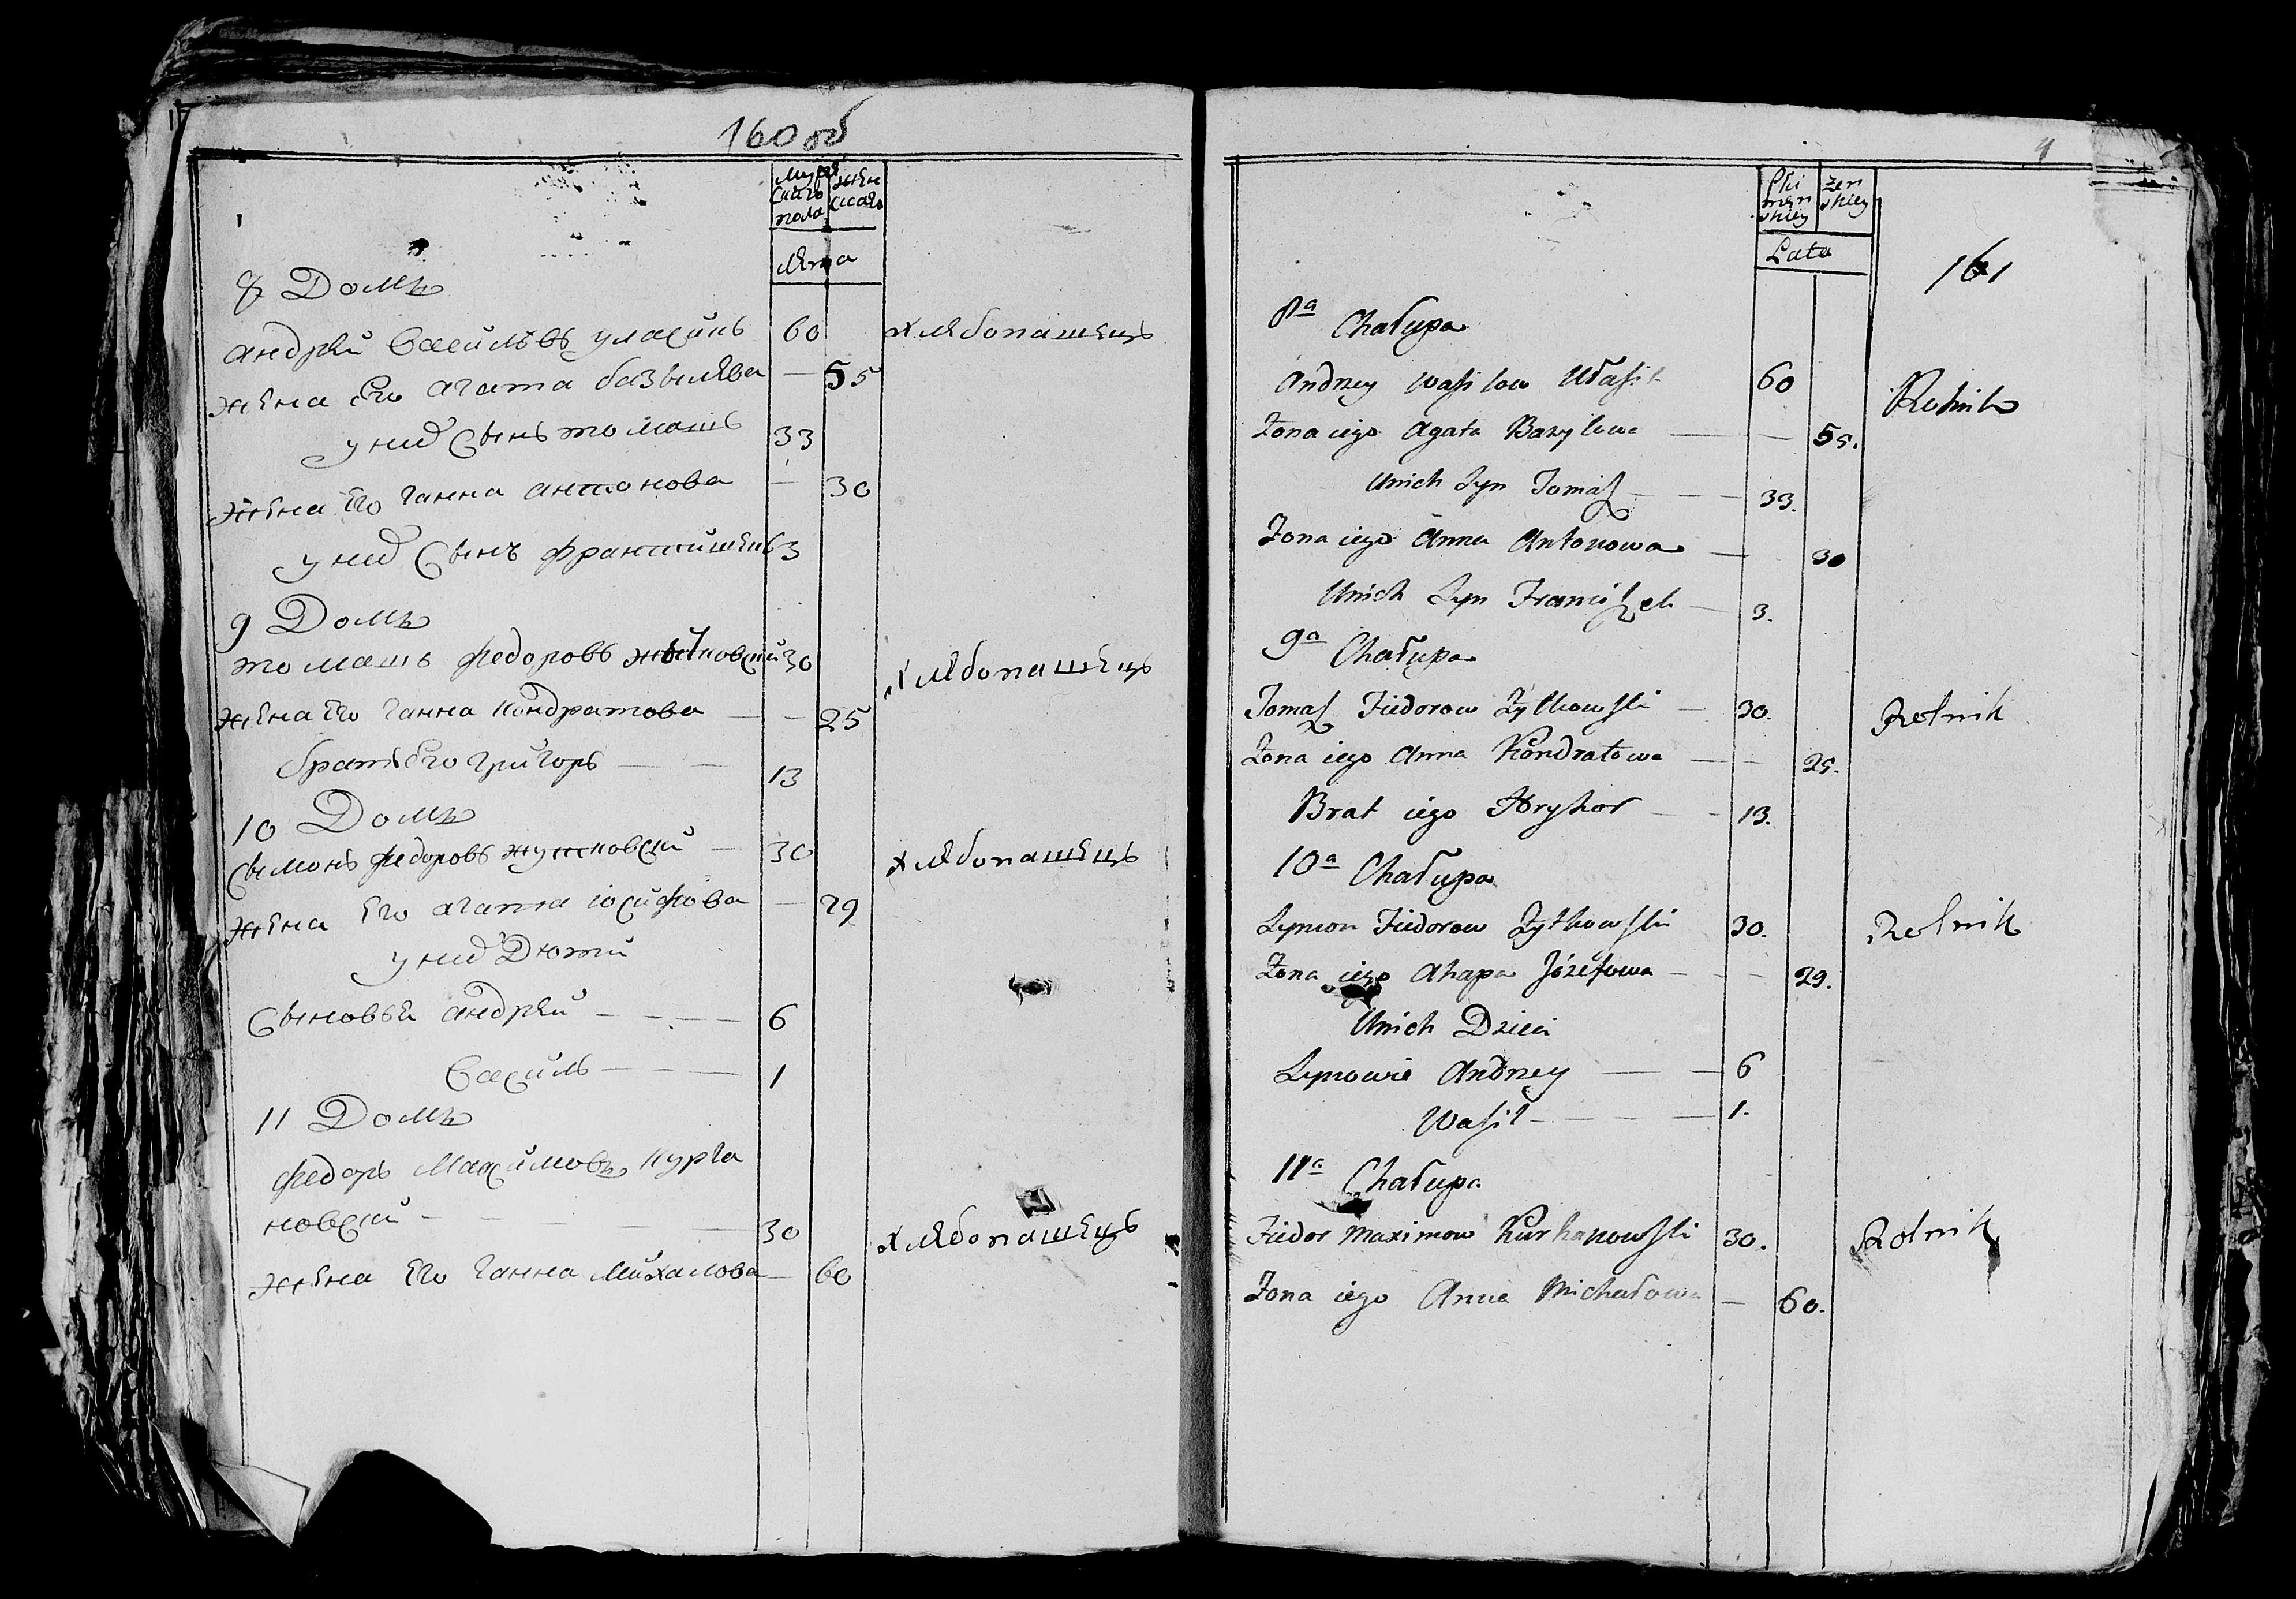 160 об
Мужескаго пола
женскаго
Лѣта
8 Домъ
Андрей Васильевъ Уласикъ 60 хлѣбопашецъ
жена Его Агата базылева — 55
у них Сынъ томашъ 33
жена Его Ганна антонова — 30
у них Сынъ францишекъ 3
9 Домъ
томашъ федоровъ жытковский 30 хлѣбопашецъ
жена Его Ганна Кондратова — — 25
братъ Его Григоръ — — 13
10 Домъ
Сымонъ федоровъ жутковский — 30 хлѣбопашецъ
жена Его агата Іосифова — 29
у них Дѣти
Сыновья андрей — — — 6
Василь — — — 1
11 Домъ
федоръ Максимовъ Курга
новский — — — — — 30 хлѣбопашецъ
жена Его Ганна Михалова — 60
Płci męnskiey
żenskiey
Lata
161
8a Chałupa
Andrzey Wasilow Ułasik 60 Rolnik
Żona iego Agata Bazylewa — — 55.
Unich Syn Tomasz — — — 33.
Żona iego Anna Antonowa — 30
Unich Syn Franciszek — 3.
9a Chałupa
Tomasz Fiedorow Żytkowski — 30. Rolnik
Żona iego Anna Kondratowa — — 25.
Brat iego Hryhor — — 13.
10a Chałupa
Symon Fiedorow Żytkowski 30. Rolnik
Żona iego Ahapa Józefowa — — — 29.
Unich Dzieci
Synowie Andrzey — — 6
Wasil — — — — 1.
11a Chałupa
Fiedor Maximow Kurhanowski 30. Rolnik
Żona iego Anna Michałowa — 60.